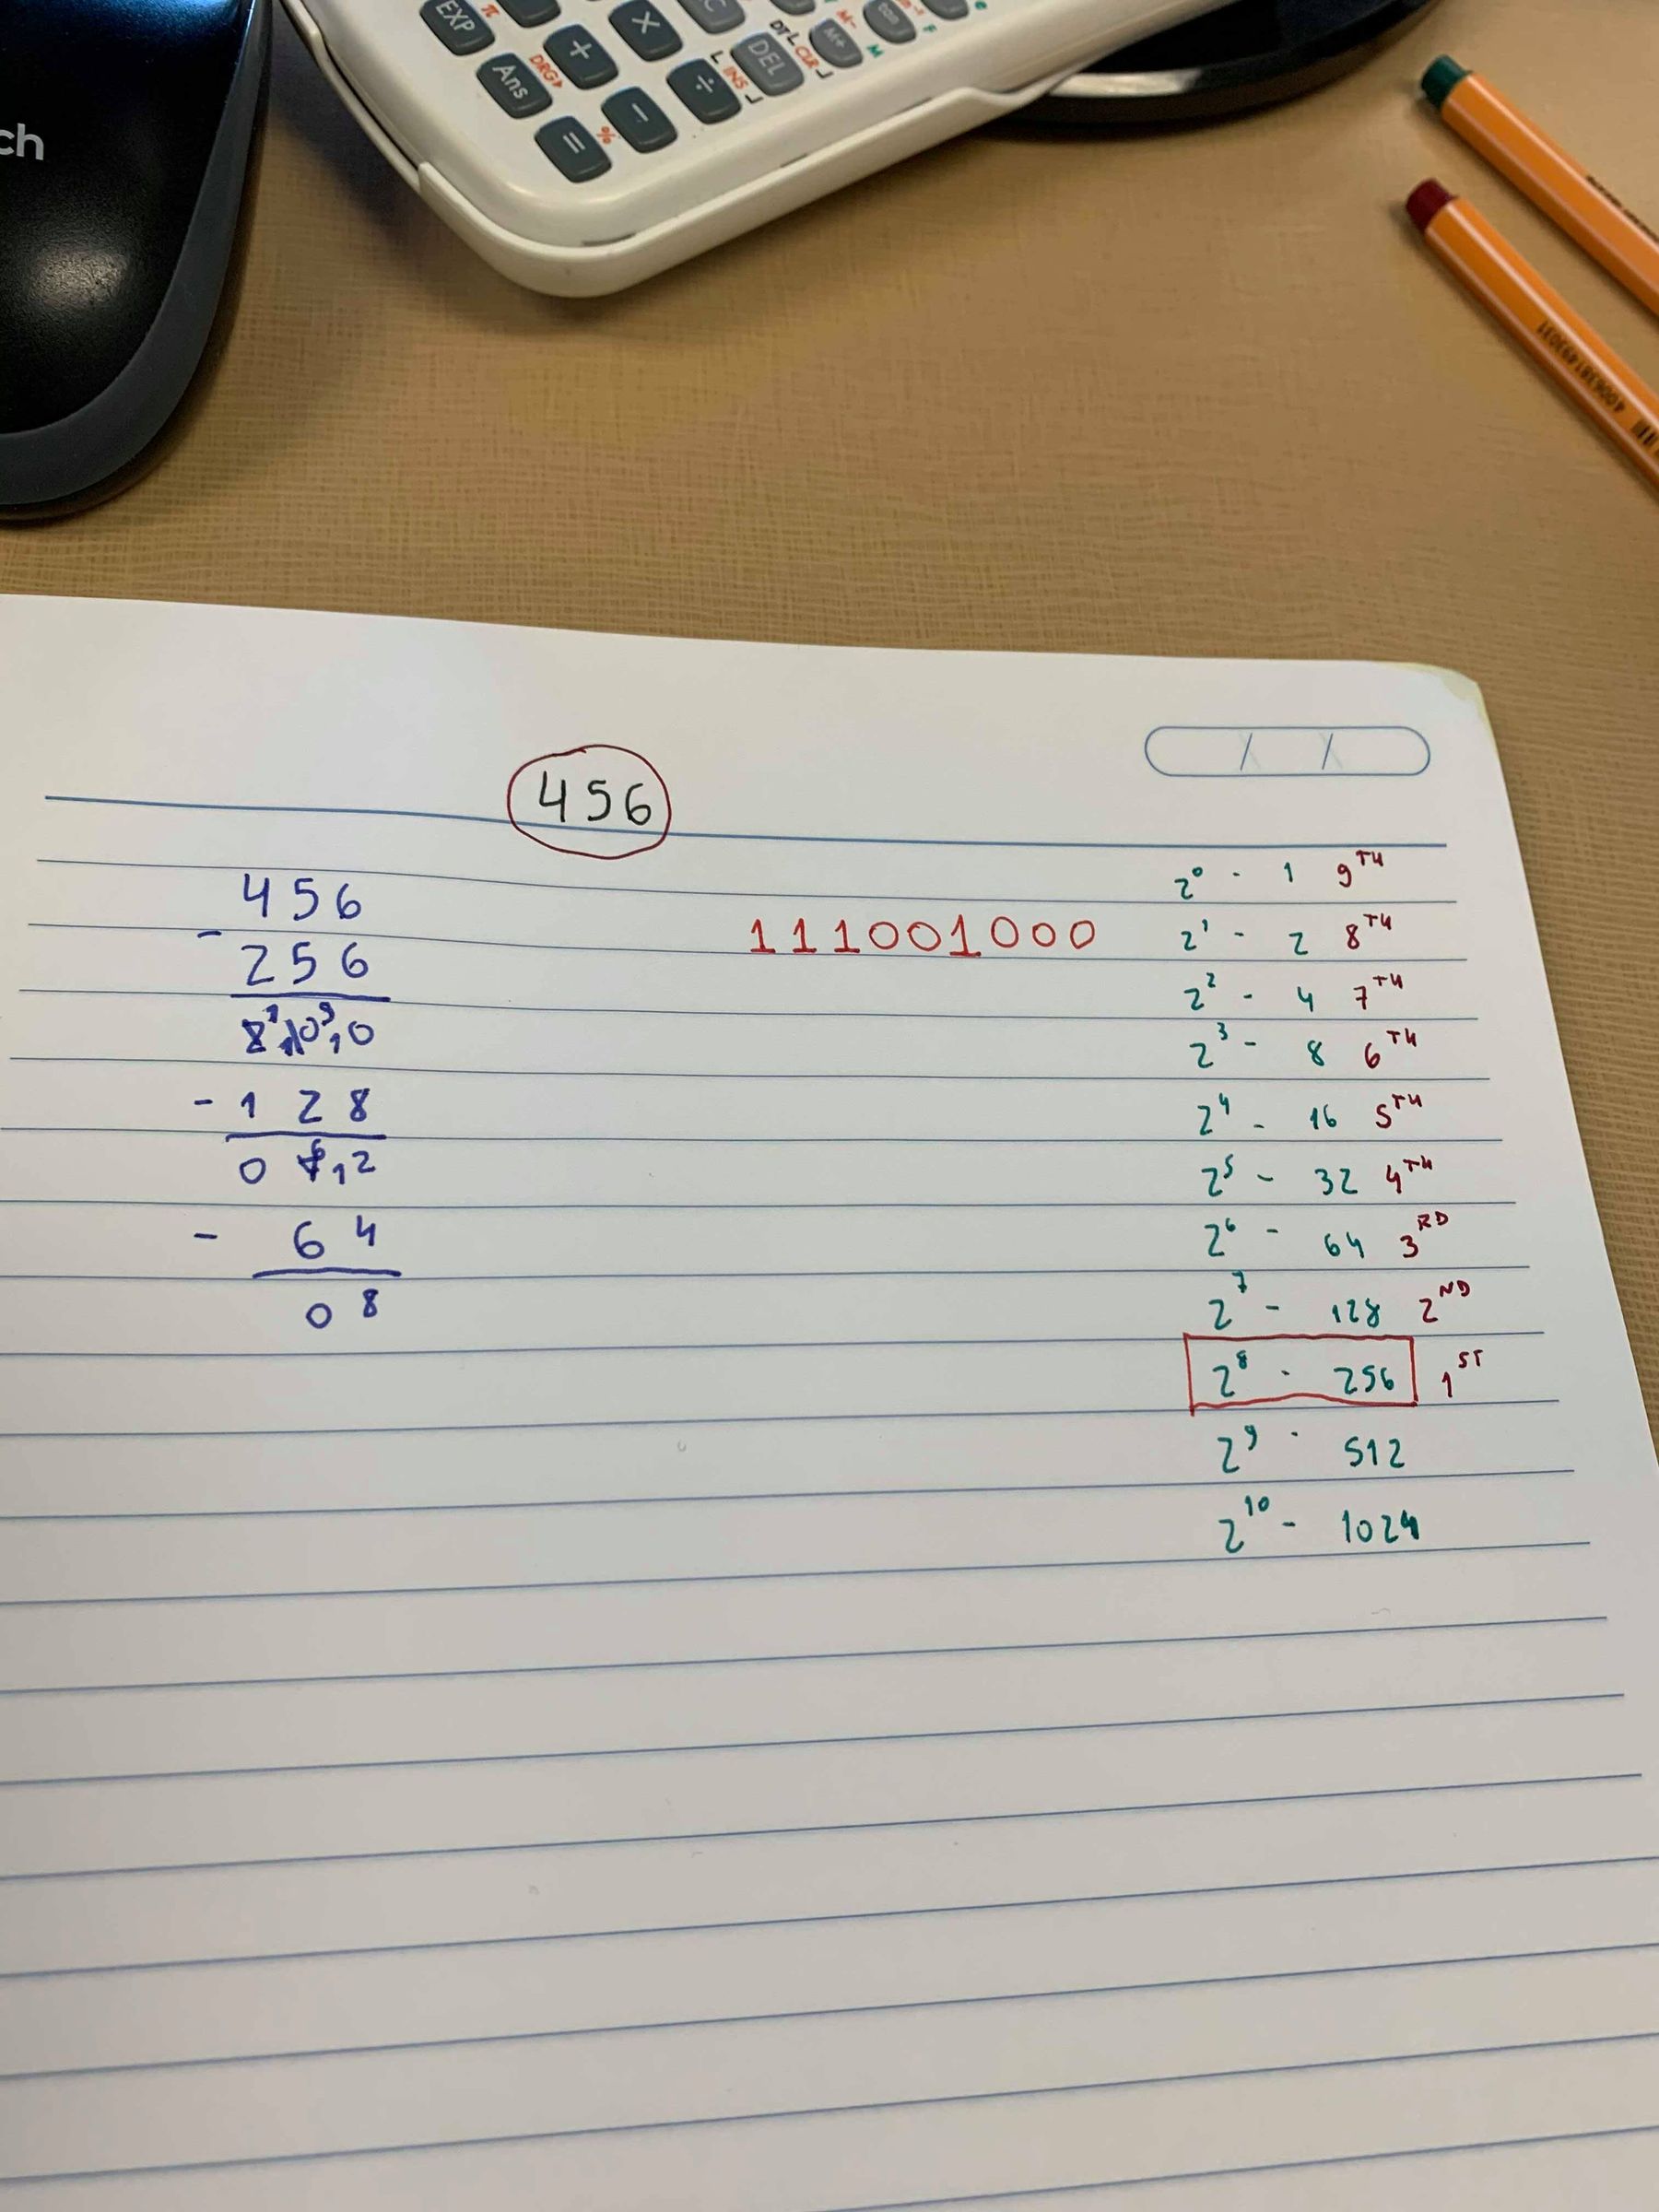 ch
EXP
π
Ans
DRG▸
+
×
C
=
%
−
÷
DEL
INS
DT
CLR
M+
M−
M
tan
F
e
4006381493031
456
456
- 256
200
- 128
072
- 64
08
111001000
2⁰ - 1 9TH
2¹ - 2 8TH
2² - 4 7TH
2³ - 8 6TH
2⁴ - 16 5TH
2⁵ - 32 4TH
2⁶ - 64 3RD
2⁷ - 128 2ND
2⁸ - 256 1ST
2⁹ - 512
2¹⁰ - 1024